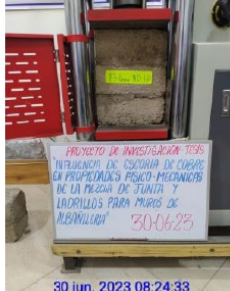 PROYECTO DE INVESTIGACIÓN-TESIS
"INFLUENCIA DE ESCORIA DE COBRE
EN PROPIEDADES FISICO-MECANICAS
DE LA MEZCLA DE JUNTA Y
LADRILLOS PARA MUROS DE
ALBAÑILERIA"
30-06-23
30 jun. 2023 08:24:33